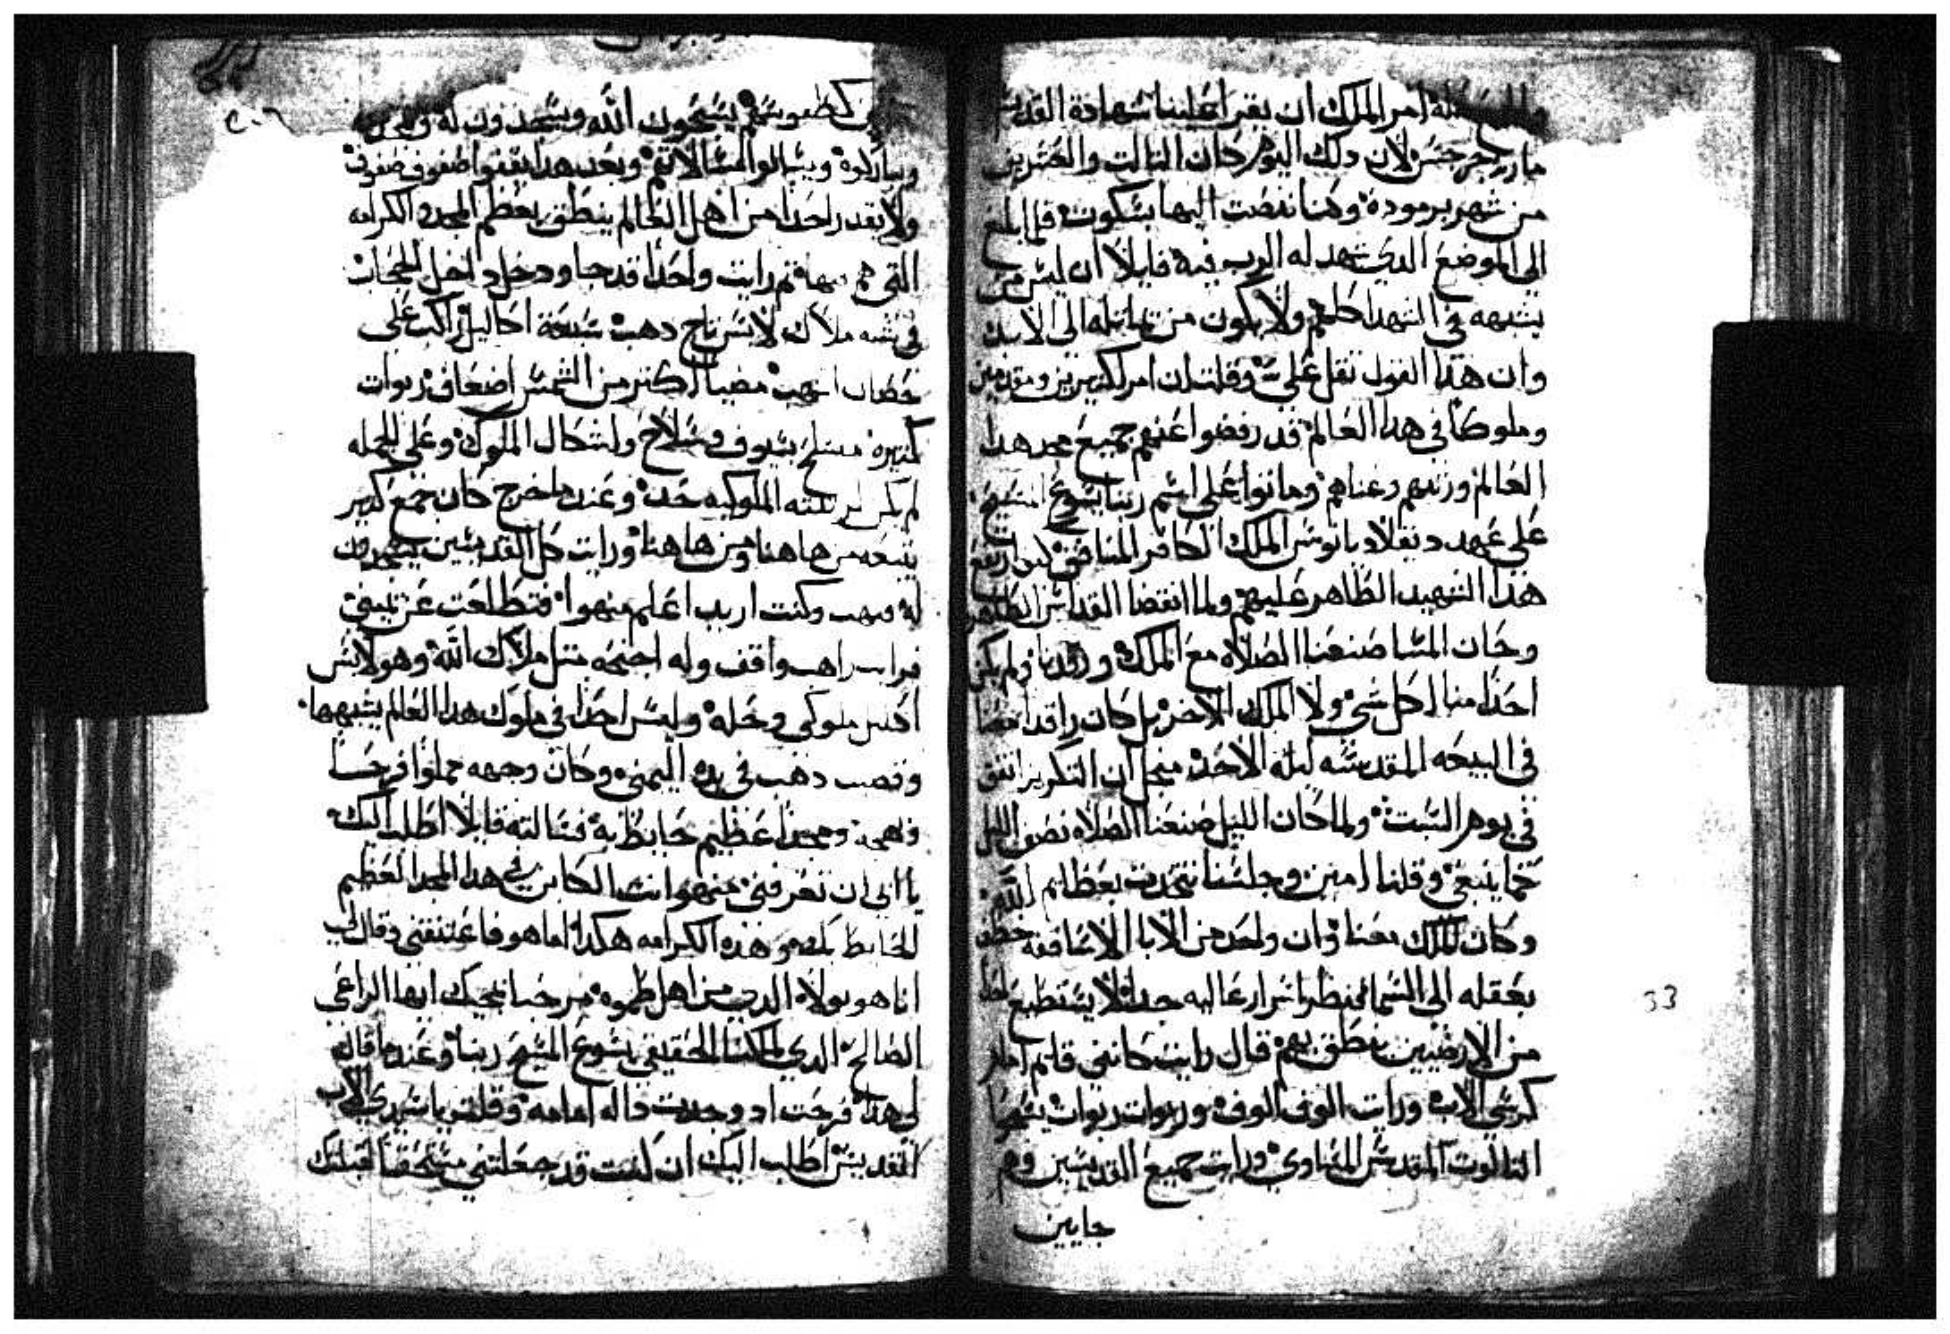 امر الملك ان يقرا علينا شهادة القديس
مار جرجس لان دلك اليوم كان التالت والعشرين
من شهر برموده وكنا ننصت اليها بسكوت فلما بلغ
الى الموضع الدي شهد له الرب فيه قايلا ان ليس من
يشبهه في الشهدا كلهم ولا يكون من يماتله الى الابد
وان هدا القول تقل علي وقلت ان امر كتيرين ومقدمين
وملوكا في هدا العالم قد رفضوا عنهم جميع مجد هدا
العالم وزيهم وغناهم وماتوا على اسم ربنا يسوع المسيح
على عهد دىقلاديانوس الملك الكافر المنافق
هدا الشهيد الطاهر عليهم ولما انقضا القداس الطاهر
وكان المسا صنعنا الصلاه مع الملك ورقدنا ولم يكن
احدا منا اكل شي ولا الملك الاخر بل كان راقد
في البيعه المقدسه ليله الاحد من اجل ان التكريز اتفق
في يوم السبت ولما كان الليل صنعنا الصلاه نصف الليل
كما ينبغي وقلنا امين وجلسنا نتحدت بعظايم الله
وكان الملك معنا وان واحد من الابا الاساقفه خطف
بعقله الى السما فنظر اسرار عاليه جدا لا يستطيع احد
من الارضيين ينطق بهم قال رايت كانني قايم امام
كرسي الاب ورايت الوف الوف وربوات ربوات
التالوت المقدس السماوي ورايت جميع القديسين وهم
جايين
كطقوسهم يسبحون الله ويسجدون له
ويباركوه ويسالوا المسالات وبعد هدا يقفوا صفوف صفوف
ولا يقدر احدا من اهل العالم ينطق بعظم المجد والكرامه
التي هم فيها تم رايت واحدا قد جا ودخل داخل الحجاب
في شبه ملاك لابس تاج دهب سبعة اكاليل راكب على
حصان اشهب مضيا اكتر من الشمس اضعاف ربوات
كتيره متسلح بسيوف وسلاح ولشكال الملوك وعلى الجمله
لم يكن لرتبته الملوكيه حد وعندما خرج كان جمع كبير
يتبعه من هاهنا ومن هاهنا ورايت كل القديسين يسجدون
له فبهت وكنت اريد اعلم منهوا فتطلعت عن يميني
فرايت راهب واقف وله اجنحه متل ملاك الله وهو لابس
اكليل ملوكي وحله وليس احدا في ملوك هدا العالم يشبهها
وقصيب دهب في يده اليمني وكان وجهه مملوا فرحا
وبهجه ومجدا عظيم حايط به فسالته قايلا اطلب اليك
يا ابى ان تعرفني منهو انت الكاين في هدا المجد العظيم
الحايط بك وهده الكرامه هكدا اما هو فاعتنقني وقال لي
انا هو بولا الدي من اهل طموه مرحبا بمجيك ايها الراعي
الصالح الدي لملكنا الحقيقي يسوع المسيح ربنا وعندما قال
لي هدا فرحت ادوجدت داله امامه وقلت يا سيدي الاب
القديس اطلب اليك ان كنت قد جعلتني مستحقا لقبلتك
33